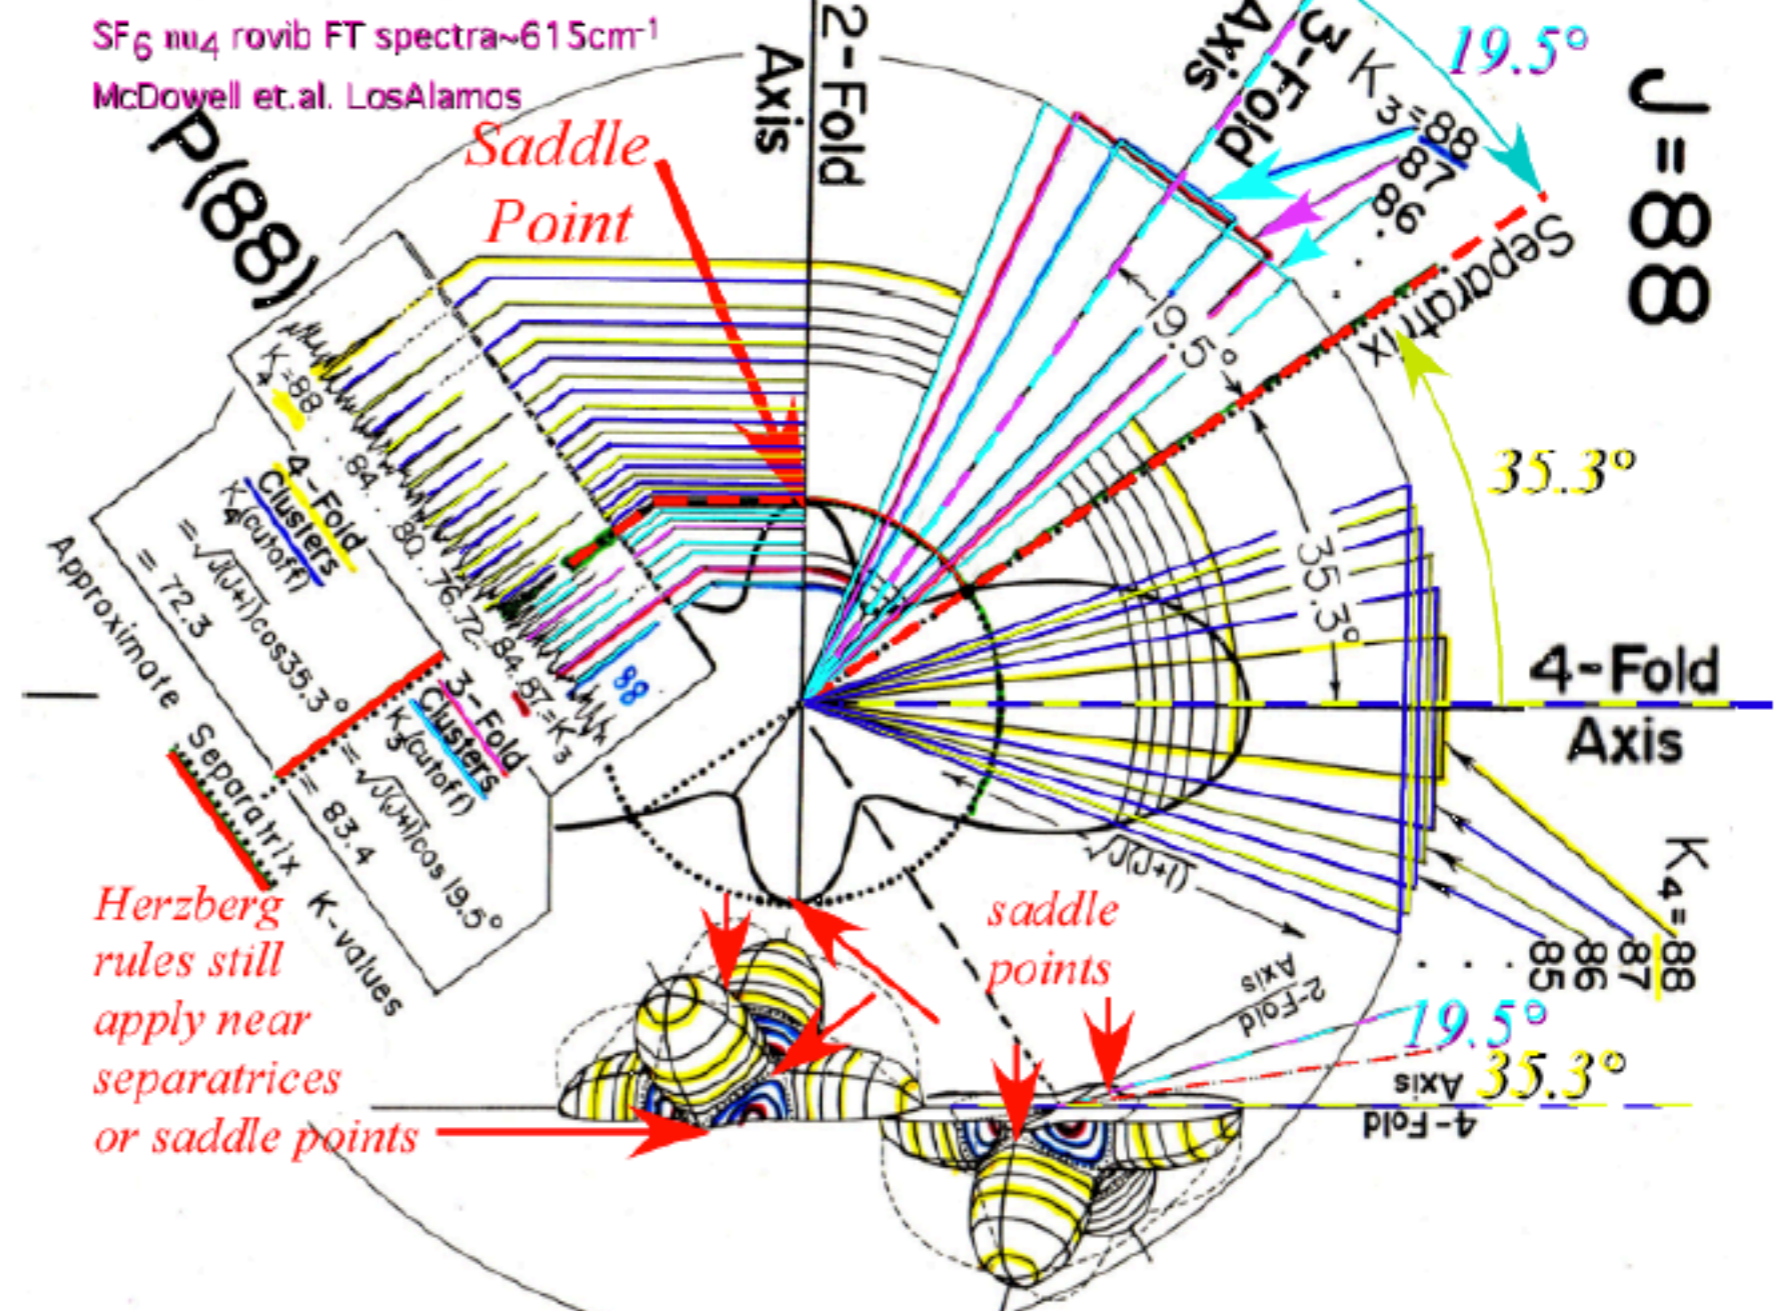 SF6 nu4 rovib FT spectra~615cm-1
McDowell et.al. LosAlamos
P(88)
Saddle
Point
2-Fold
Axis
3-Fold
Axis
19.5°
K3=88
87
86
.
.
J=88
Separatrix
19.5°
35.3°
35.3°
4-Fold
Axis
K4=88. .84. .80. .76.72. 84. 87.=K3
88
4-Fold
Clusters
K4(cutoff)
=√J(J+1)cos35.3°
= 72.3
3-Fold
Clusters
K3(cutoff)
=√J(J+1)cos19.5°
= 83.4
Approximate Separatrix K-values
√J(J+1)
K4=
88
87
86
85
. . .
Herzberg
rules still
apply near
separatrices
or saddle points
saddle
points
2-Fold
Axis
19.5°
35.3°
4-Fold
Axis